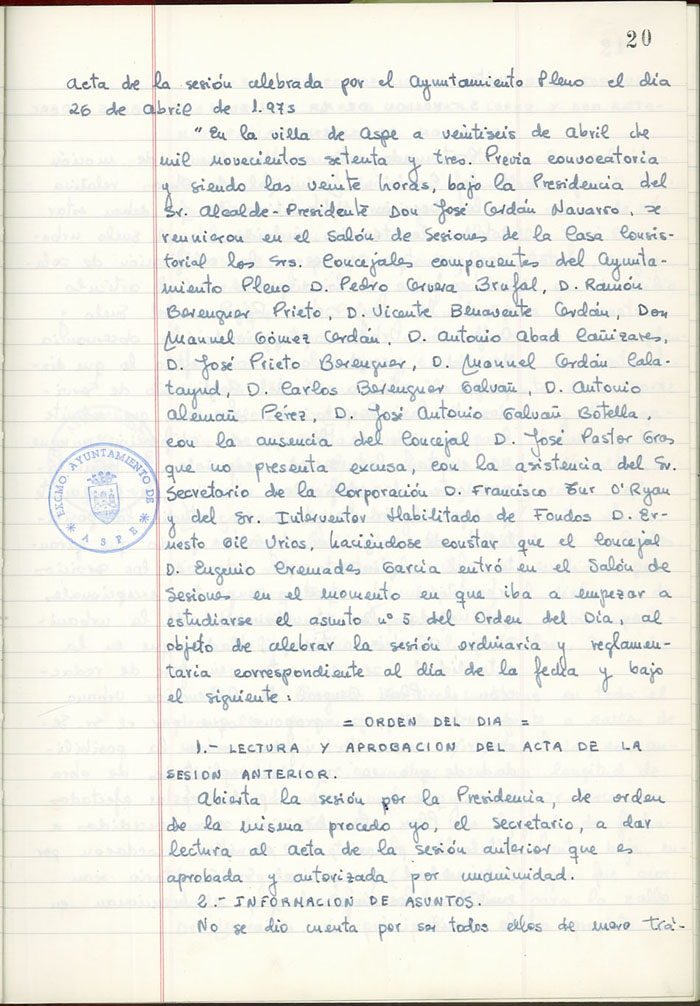 20
Acta de la sesión celebrada por el Ayuntamiento Pleno el dia
26 de Abril de 1.973
"En la villa de Aspe a veintiseis de Abril de
mil novecientos setenta y tres. Previa convocatoria
y siendo las veinte horas, bajo la Presidencia del
Sr. Alcalde-Presidente Don José Cerdán Navarro, se
reunieron en el Salón de Sesiones de la Casa Consis-
torial los Srs. Concejales componentes del Ayunta-
miento Pleno D. Pedro Cervera Brufal, D. Ramón
Berenguer Prieto, D. Vicente Benavente Cerdán, Don
Manuel Gómez Cerdán, D. Antonio Abad Cañizares,
D. José Prieto Berenguer, D. Manuel Cerdán Cala-
tayud, D. Carlos Berenguer Galvañ, D. Antonio
Alemañ Pérez, D. José Antonio Galvañ Botella,
con la ausencia del Concejal D. José Pastor Gras
que no presenta excusa, con la asistencia del Sr.
Secretario de la Corporación D. Francisco Zur O'Ryan
y del Sr. Interventor Habilitado de Fondos D. Er-
nesto Gil Urios, haciéndose constar que el Concejal
D. Eugenio Cremades García entró en el Salón de
Sesiones en el momento en que iba a empezar a
estudiarse el asunto nº 5 del Orden del Día, al
objeto de celebrar la sesión ordinaria y reglamen-
taria correspondiente al día de la fecha y bajo
el siguiente:
= ORDEN DEL DIA =
1.- LECTURA Y APROBACION DEL ACTA DE LA
SESION ANTERIOR.
Abierta la sesión por la Presidencia, de orden
de la misma procedo yo, el Secretario, a dar
lectura al acta de la sesión anterior que es
aprobada y autorizada por unanimidad.
2.- INFORMACION DE ASUNTOS.
No se dio cuenta por ser todos ellos de mero trá-
EXCMO. AYUNTAMIENTO DE
* ASPE *